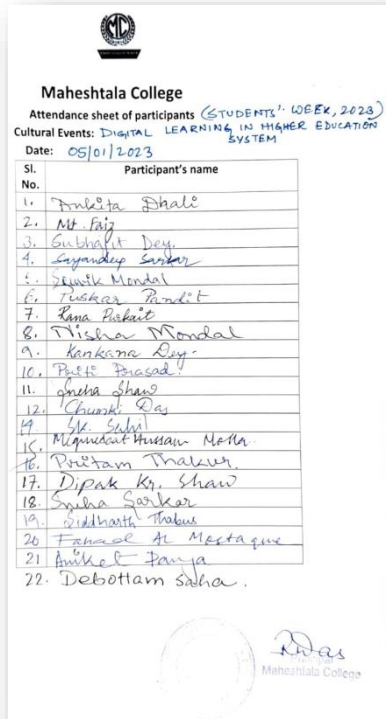 MC
Maheshtala College
Attendance sheet of participants (STUDENTS' WEEK, 2023)
Cultural Events: DIGITAL LEARNING IN HIGHER EDUCATION SYSTEM
Date: 05/01/2023
Sl. No. Participant's name
1. Ankita Dhali
2. Md. Faiz
3. Subhajit Dey.
4. Sayandeep Sarkar
5. Souvik Mondal
6. Tuskar Pandit
7. Rana Purkait
8. Nisha Mondal
9. Kankana Dey.
10. Priti Prasad.
11. Sneha Shaw
12. Chumki Das
14 Sk. Sahil
15. Hussain Molla
16. Pritam Thakur.
17. Dipak Kr. Shaw
18. Sneha Sarkar
19. Siddharth Thakur
20 Fahad Al Mostaque
21 Aniket Panja
22. Debottam Saha.
Principal
Maheshtala College